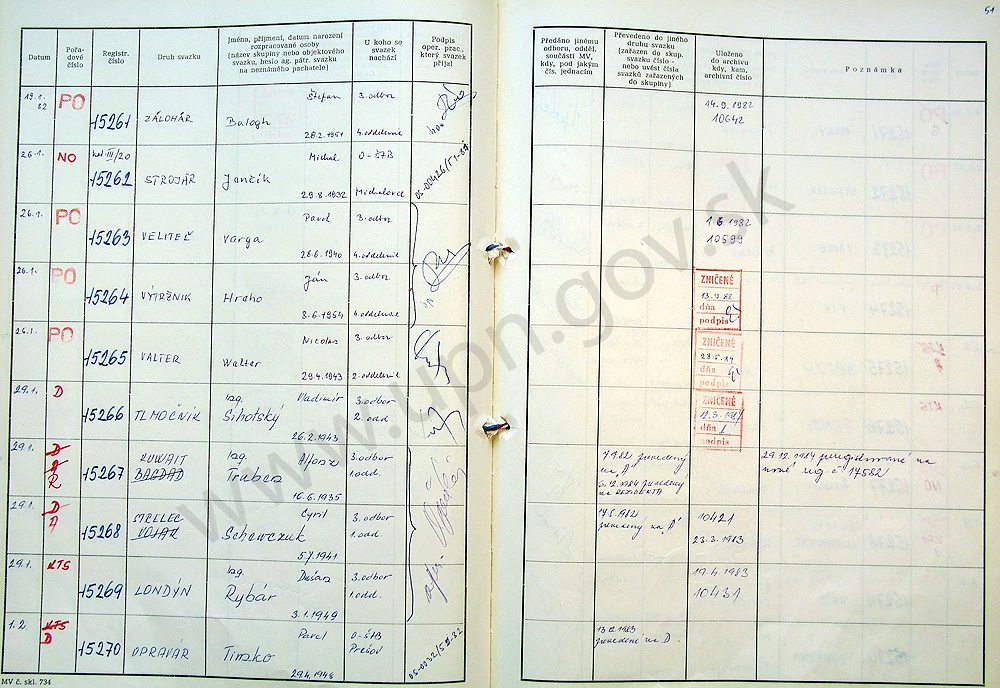 51
Datum
Pořadové číslo
Registr. číslo
Druh svazku
Jméno, příjmení, datum narození rozpracované osoby (název skupiny nebo objektového svazku, heslo ag. pátr. svazku na neznámého pachatele)
U koho se svazek nachází
Podpis oper. prac., který svazek přijal
Předáno jinému odboru, odděl. součásti MV, kdy, pod jakým čís. jednacím
Převedeno do jiného druhu svazku (zařazen do skup. svazku číslo - nebo uvést čísla svazků zařazených do skupiny)
Uloženo do archivu kdy, kam, archivní číslo
Poznámka
19.1. 82 PO 15261 ZÁLOHÁR Štefan Balogh 28.2.1951 3. odbor 4. oddelenie
14.9.1982
10642
26.1. NO 15262 STROJÁR Michal Jančík 29.8.1932 O-ŠTB Michalovce
26.1. PO 15263 VELITEĽ Pavol Varga 28.6.1940 3. odbor 4. oddelenie
1.6.1982
10599
26.1. PO 15264 VÝTRŽNIK Ján Hraho 8.6.1954 3. odbor 4. oddelenie
ZNIČENÉ
dňa
podpis
26.1. PO 15265 VALTER Nicolas Walter 29.4.1943 3. odbor 2. oddelenie
ZNIČENÉ
dňa
podpis
29.1. D 15266 TLMOČNIK Ing. Vladimír Sihotský 26.2.1943 3. odbor 2. odd.
ZNIČENÉ
dňa
podpis
29.1. D R 15267 KUWAIT BAGDAD Ing. Alfonz Truben 16.6.1935 3. odbor 1. odd.
zvedený na "A"
6.12.1984 zvedený na REZIDENTA
29.12.1984 preregistrované na nové reg. č. 17582
29.1. D A 15268 STRELEC VOJAK Cyril Schewczuk 5.7.1941 3. odbor 1. odd.
17.5.1982 zvedený na "A"
10421
23.3.1983
29.1. KTS 15269 LONDÝN Ing. Dušan Rybár 3.1.1949 3. odbor 1. odd.
19.4.1983
10431
1.2. KTS D 15270 OPRAVAR Pavel Timko 29.4.1948 O-ŠtB Prešov
zvedené na D.
MV č. skl. 734
www.upn.gov.sk